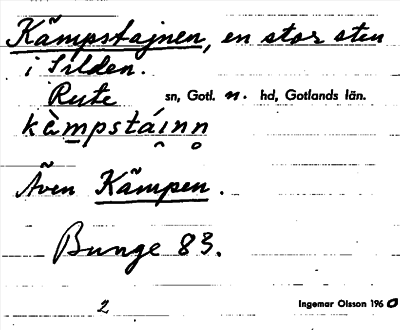 Kämpstajnen, en stor sten
i Silden.
Rute sn, Gotl. n. hd, Gotlands län.
kä̀mpstáinn̥
Även Kämpen.
Bunge 83.
2 Ingemar Olsson 1960